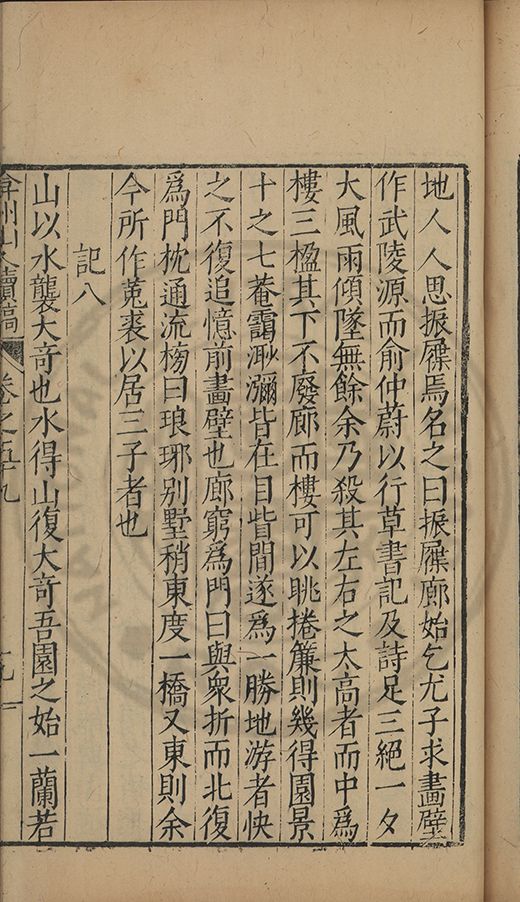 地人人思振屧焉名之曰振屧廊始乞尤子求畫壁
作武陵源而俞仲蔚以行草書記及詩足三絕一夕
大風雨傾墜無餘余乃殺其左右之太高者而中爲
樓三楹其下不廢廊而樓可以眺捲簾則幾得園景
十之七菴靄澉瀰皆在目眥間遂爲一勝地游者快
之不復追憶前畫壁也廊窮爲門曰與衆折而北復
爲門枕通流榜曰琅琊别墅稍東度一橋又東則余
今所作菟裘以居三子者也
記八
山以水襲大奇也水得山復大奇吾園之始一蘭若
弇州山人續稿
卷之五十九